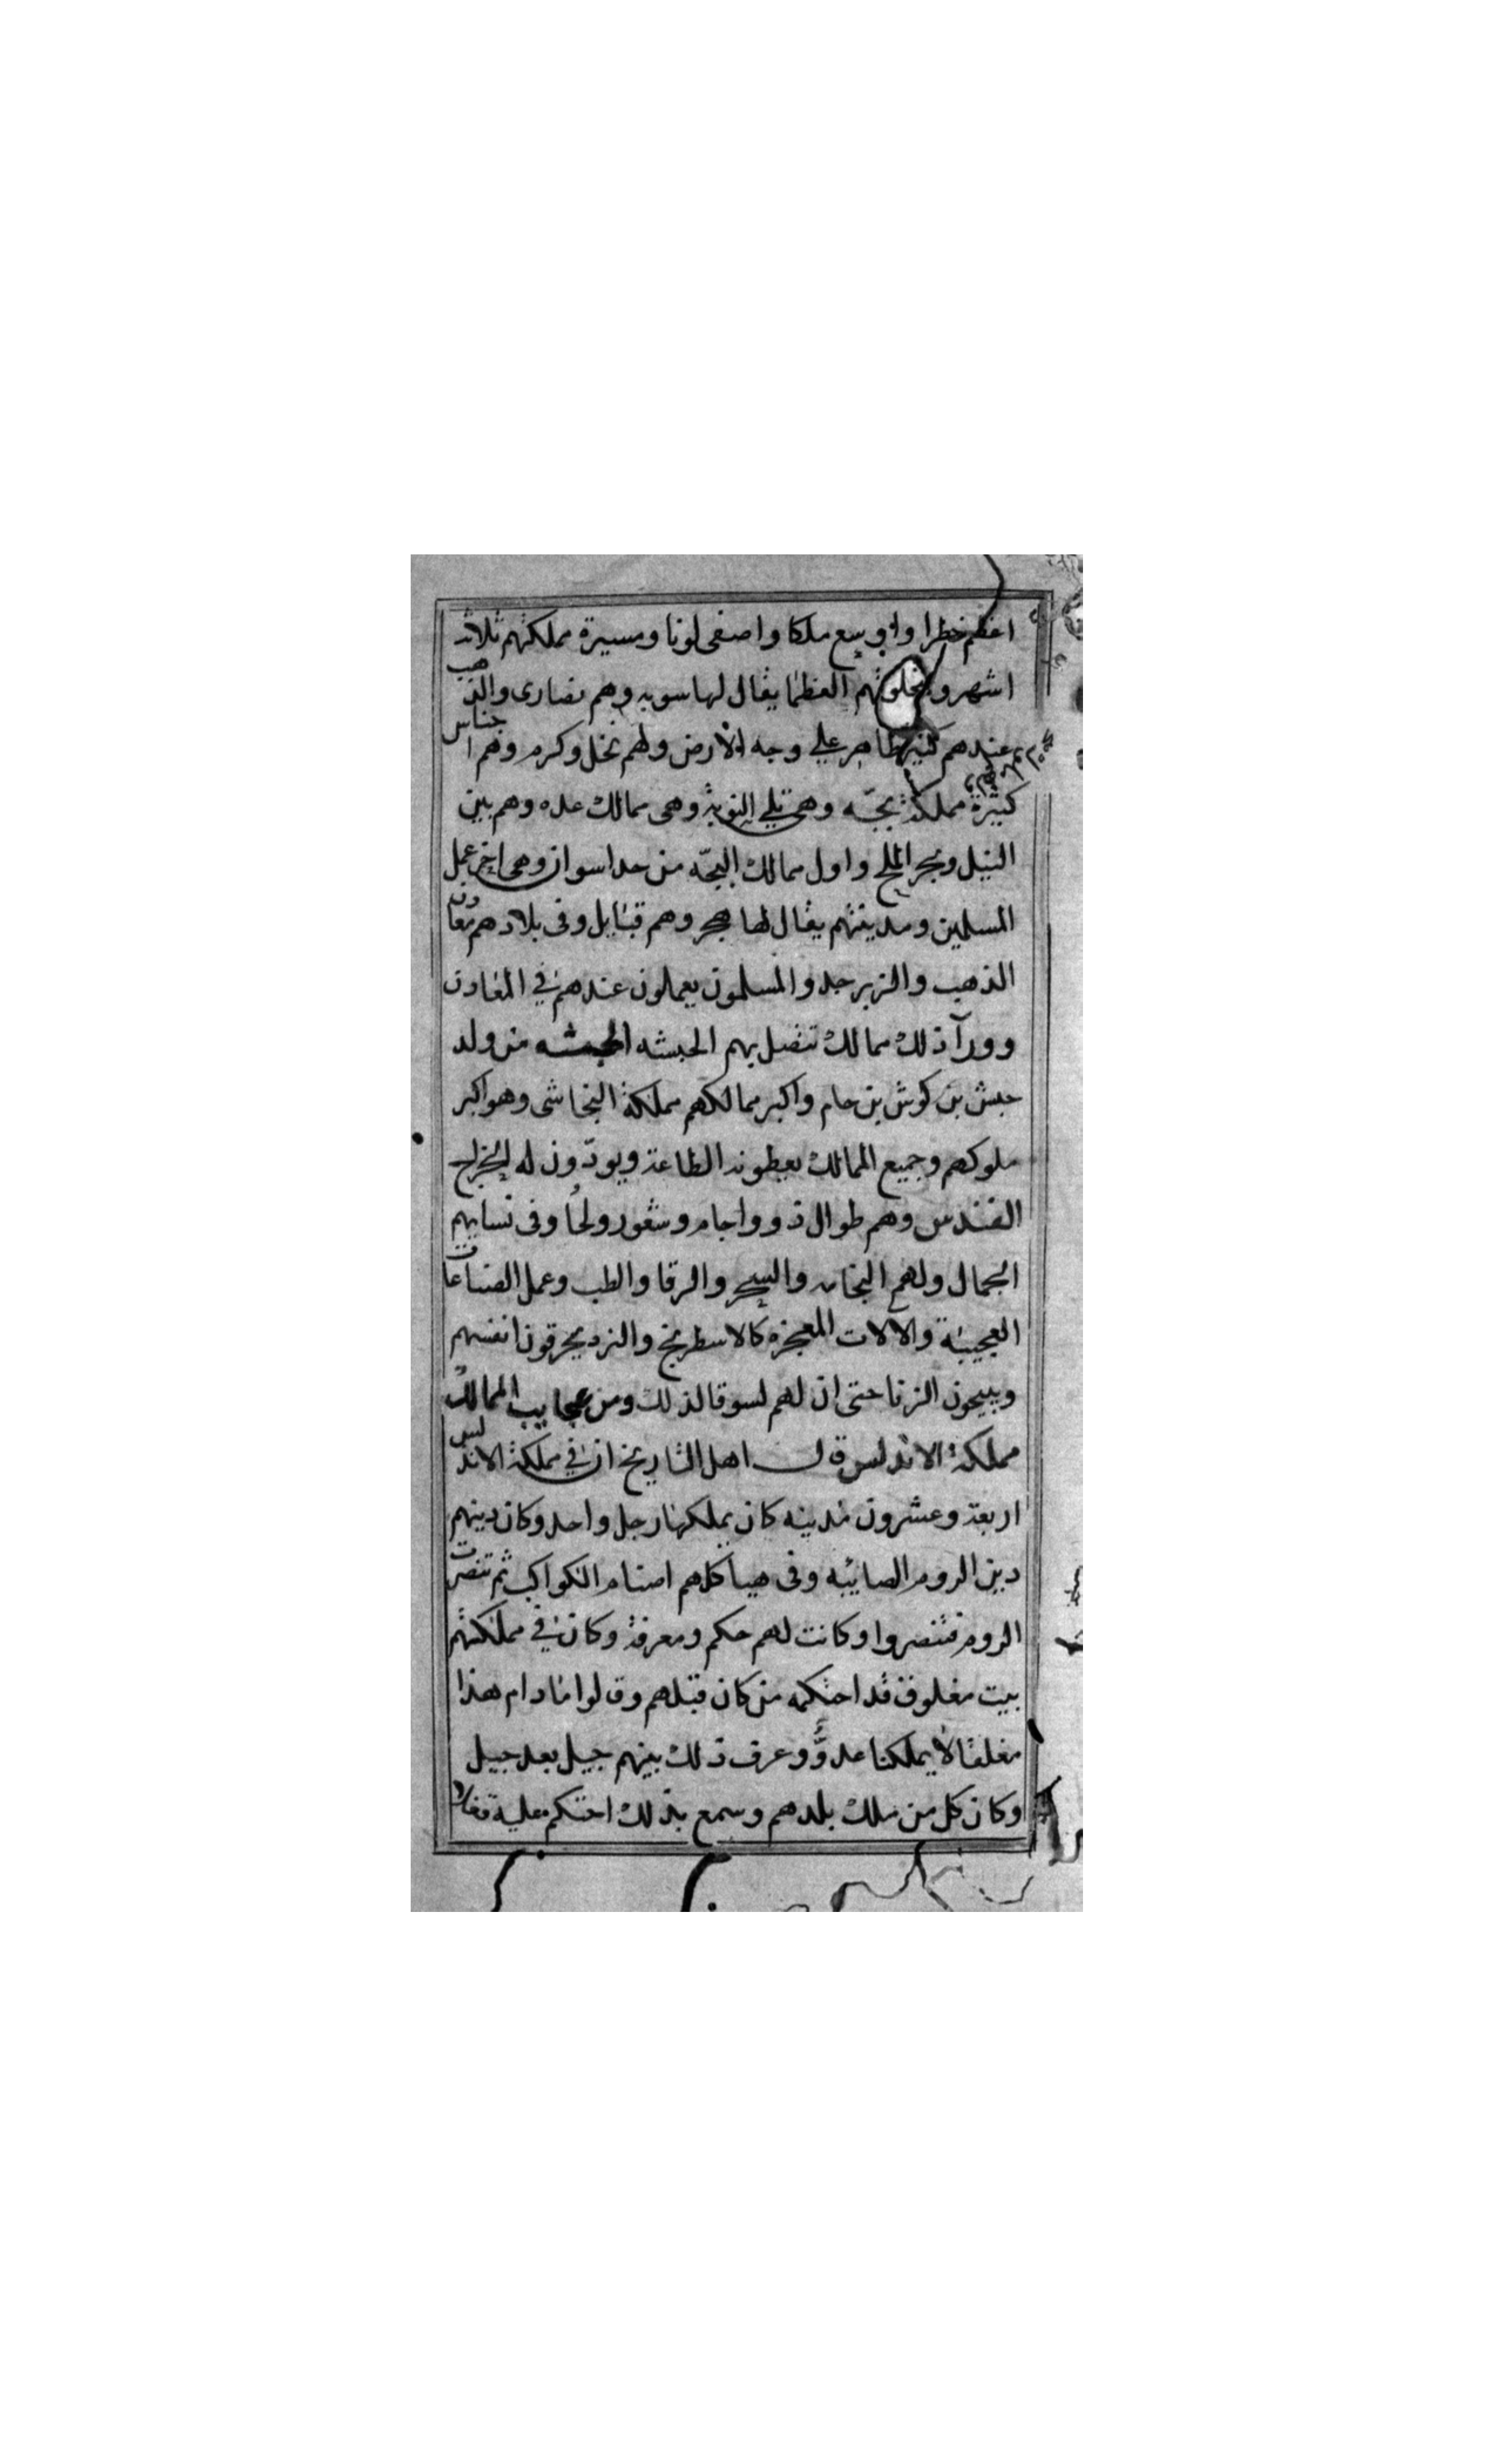 اعظم خطرا واوسع ملكا واصفى لونا ومسيرة مملكتهم ثلاث
اشهر و العظما يقال لها سوبه وهم نصارى والذهب
عندهم كثير ظاهر على وجه الارض ولهم نخل وكرم وهم اجناس
كثيرة مملكة بجّه وهى تلي النوبة وهى ممالك عده وهم بين
النيل وبحر الملح واول ممالك البجّه من حد اسوان وهى اخر عمل
المسلمين ومدينتهم يقال لها هجر وهم قبايل وفى بلادهم معادن
الذهب والزبرجد والمسلمون يعملون عندهم في المعادن
وورآ ذلك ممالك تتصل بهم الحبشه الحبشه من ولد
حبش بن كوش بن حام واكبر ممالكهم مملكة النجاشى وهو اكبر
ملوكهم وجميع الممالك يعطونه الطاعة ويودّون له الخراج
القندس وهم طوال ذوو اجام وشعور ولحا وفى نسايهم
الجمال ولهم والسحر والرقا والطب وعمل الصناعات
العجيبة والآلات المعجزه كالاسطرنج والنرد يحرقون انفسهم
ويبيحون الزنا حتى ان لهم لسوقا لذلك ومن عجايب الممالك
مملكة الاندلس قال اهل التاريخ ان في مملكة الاندلس
اربعة وعشرون مدينه كان يملكها رجل واحد وكان دينهم
دين الروم الصايبه وفى هياكلهم اصنام الكواكب ثم تنصرت
الروم فتنصروا وكانت لهم حكم ومعرفة وكان في مملكتهم
بيت مغلوق قد احتكمه من كان قبلهم وقالوا مادام هذا
مغلقا لا يملكنا عدوٌّ وعرف ذلك بينهم جيل بعد جيل
وكان كل من ملك بلدهم وسمع بذلك احتكم عليه قفلا